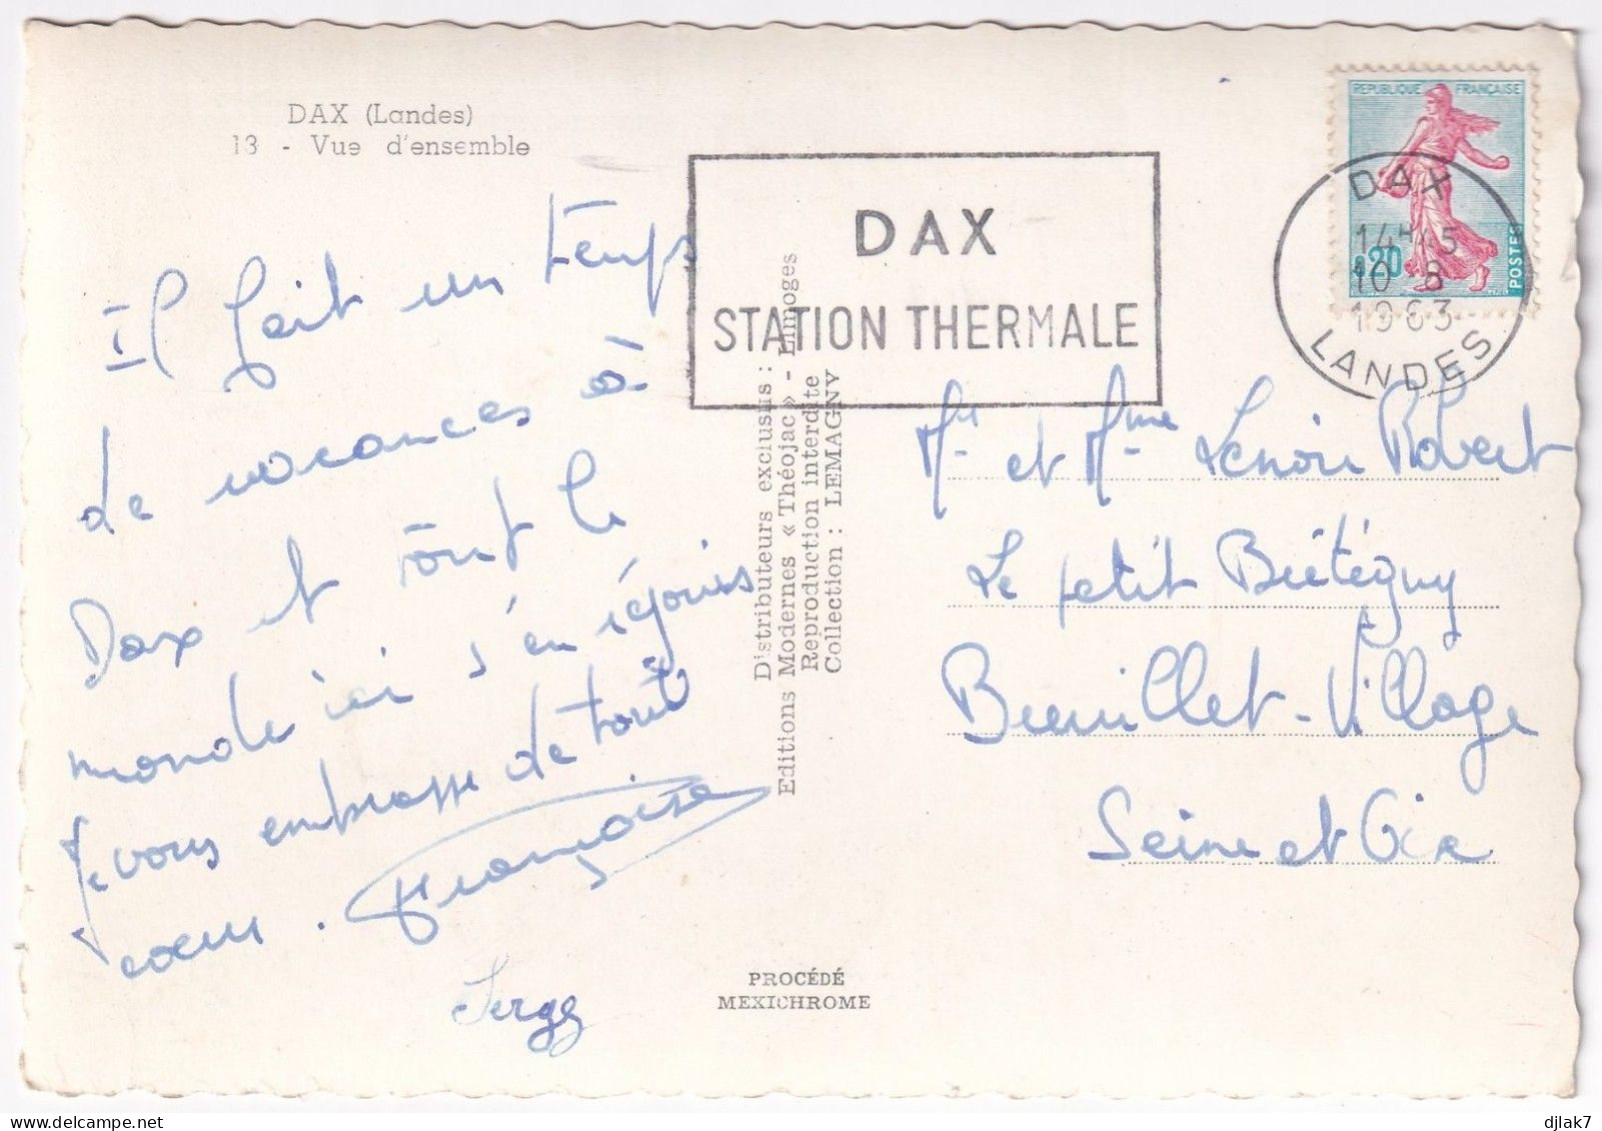 DAX (Landes)
13 - Vue d'ensemble
Il fait un temps
de vacances à
Dax et tout le
monde ici s'en réjouis
Je vous embrasse de tout
cœur. Françoise
Serge
DAX
STATION THERMALE
Distributeurs exclusifs :
Editions Modernes « Théojac » - Limoges
Reproduction interdite
Collection : LEMAGNY
PROCÉDÉ
MEXICHROME
REPUBLIQUE FRANÇAISE
0,20
POSTES
DAX
14H15
10 - 8
1963
LANDES
Mr et Mme Lenoir Robert
Le petit Bretégny
Breuillet-Village
Seine et Oise
djlak7